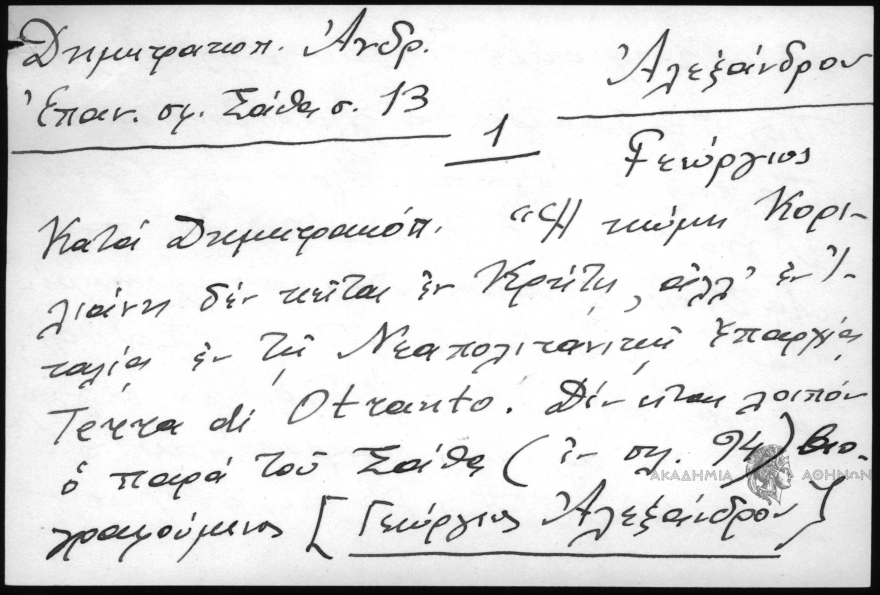 Δημητρακοπ. Ἀνδρ.
Ἐπαν. σφ. Σάθα σ. 13
Ἀλεξάνδρου
1
Γεώργιος
Κατά Δημητρακόπ. "Ἡ κώμη Κορι-
λιάνη δέν κεῖται ἐν Κρήτῃ, ἀλλ' ἐν Ἰ-
ταλίᾳ ἐν τῇ Νεαπολιτανικῇ ἐπαρχίᾳ
Terra di Otranto. Δέν εἶναι λοιπόν
ὁ παρά τοῦ Σάθα (ἐν σελ. 94) βιο-
γραφούμενος [Γεώργιος Ἀλεξάνδρου]
ΑΚΑΔΗΜΙΑ ΑΘΗΝΩΝ